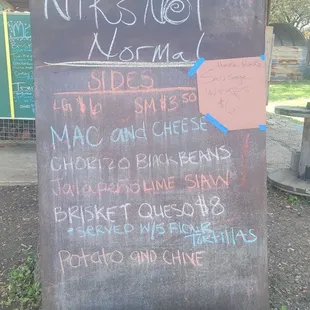 NIKS NOT
Normal
SIDES
LG $6 SM $3.50
MAC and CHEESE
CHORIZO BLACK BEANS
Jalapeño LIME SLAW
BRISKET QUESO $8
*SERVED W/5
TORTILLAS
Potato AND CHIVE
Sausage